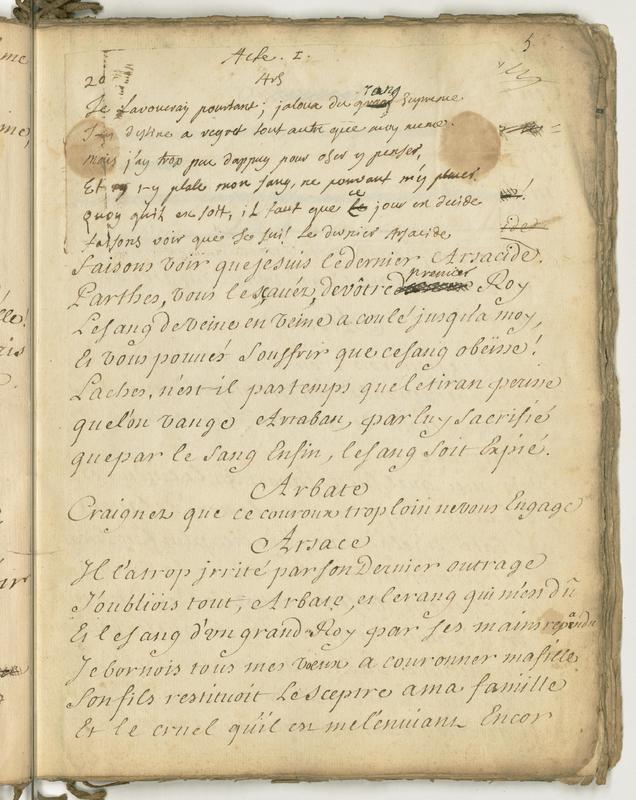 5
Acte. I.
20
Ars
Je t'avoueray pourtant; jaloux du rang supreme
J'y destine a regret tout autre que moy meme.
mais j'ay trop peu dappuy pour oser y penser,
Et s'y plaît mon sang, ne pouvant m'y placer.
quoy quil en soit, il faut que ce jour en decide
faisons voir que Je suis le dernier Arsacide
faisons voir que je suis le dernier Arsacide.
Parthes, vous le sçauez, de vôtre premier Roy
Le sang de veine en veine a coulé jusqu'a moy,
Et vous pouués souffrir que ce sang obeïsse!
Laches, n'est il pas temps que le tiran perisse
que l'on vange Artaban, par luy sacrifié
que par le sang Enfin, le sang soit Expié.
Arbate
Craignez que ce couroux trop loin ne vous Engage
Arsace
Il l'a trop jrrité par son Dernier outrage
J'oubliois tout, Arbate, et le rang qui m'est dû
Et le sang d'vn grand Roy par ses mains repandu
Je bornois tous mes voeux a couronner ma fille
Son fils restituoit le sceptre a ma famille
Et le cruel qu'il est me l'enuiant Encor